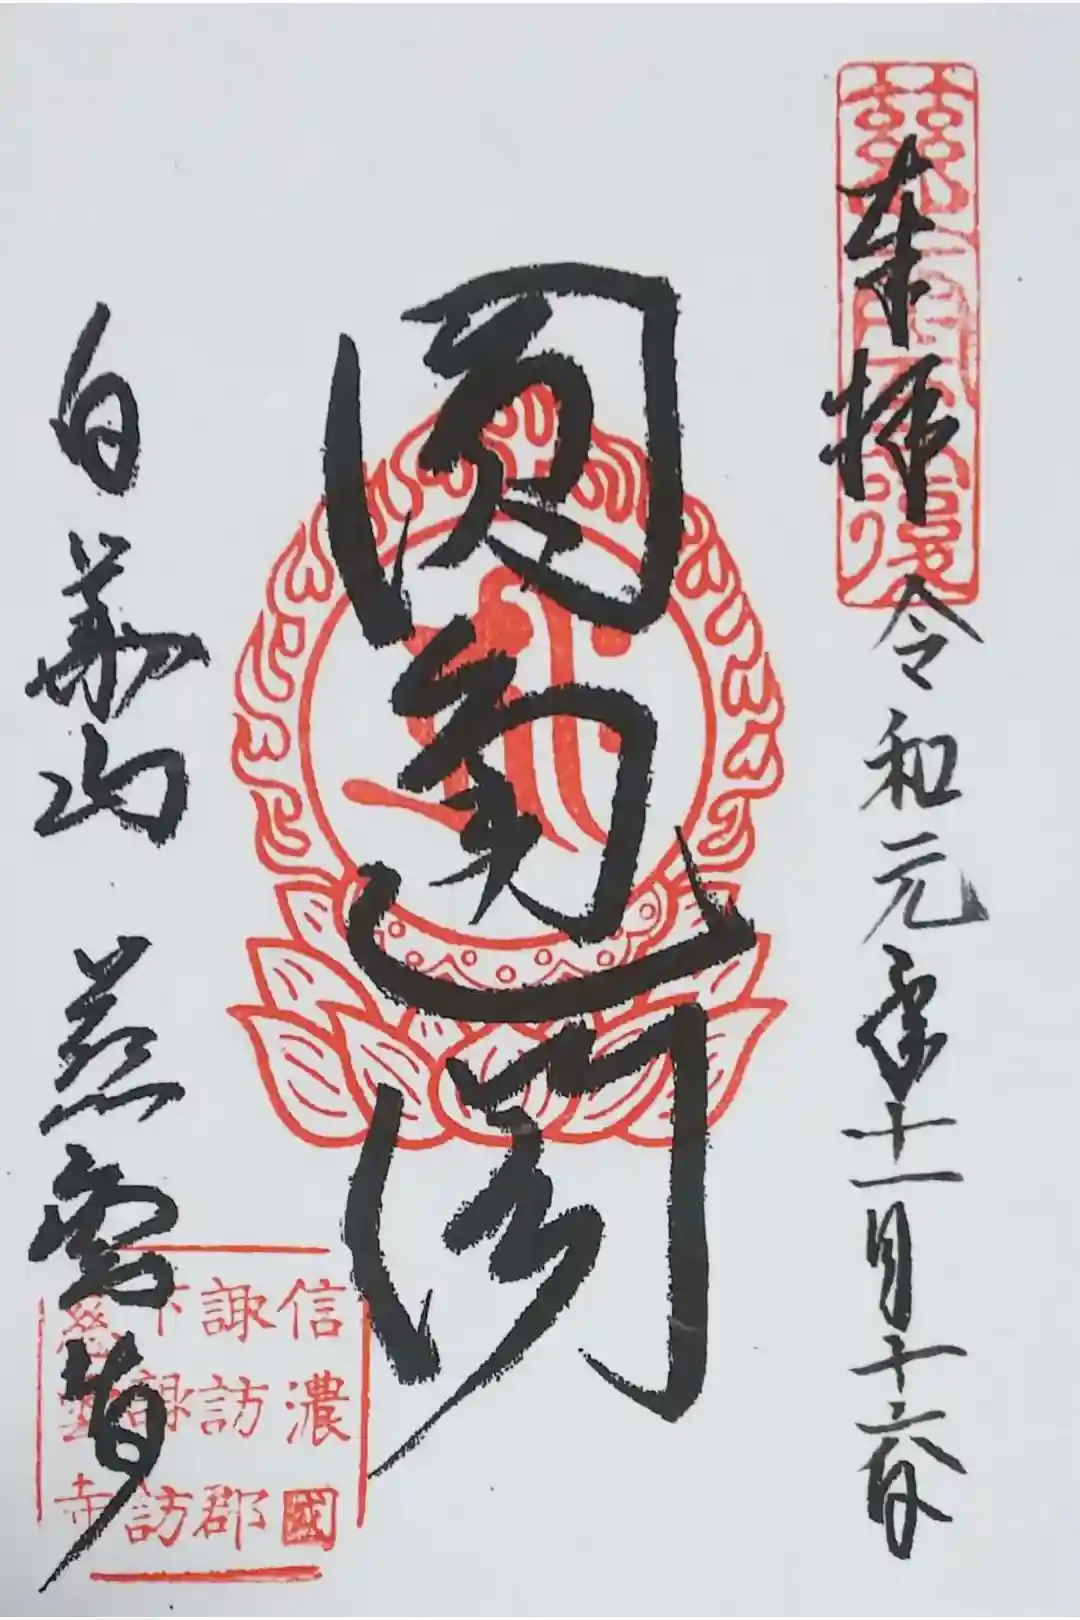 奉拝 令和元年十一月十六日
圓通閣
白華山 慈雲寺
信濃國
諏訪郡
下諏訪
慈雲寺